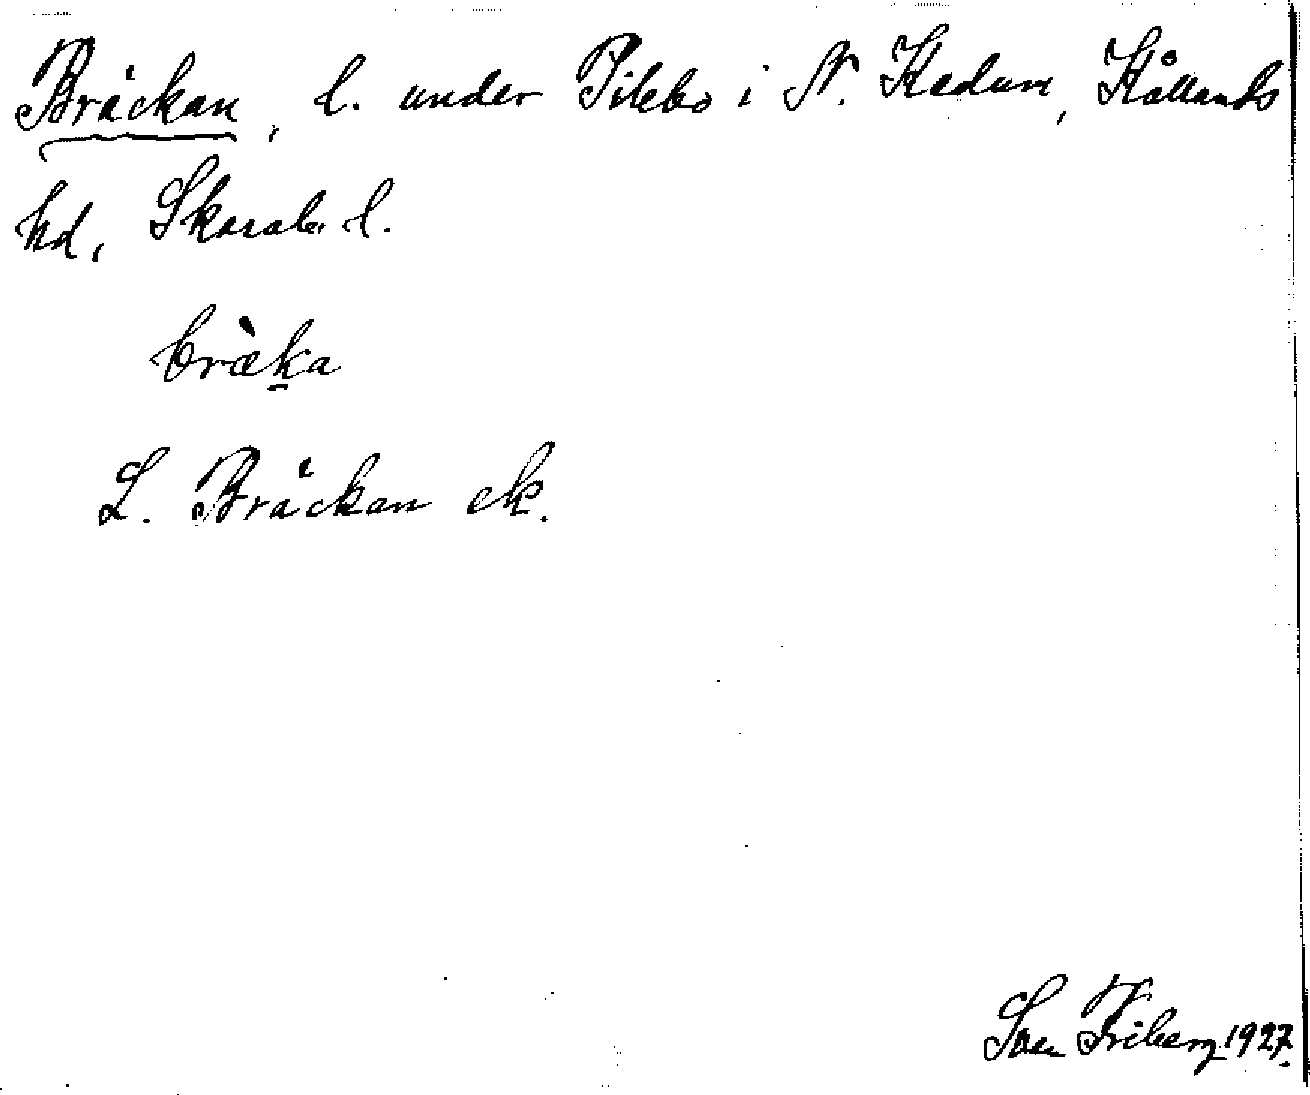 Bräckan, l. under Pilebo i N. Kedum, Kållands
hd, Skarab. l.
bræ̀ḵa
L. Bräckan ek.
Sven Friberg 1927.